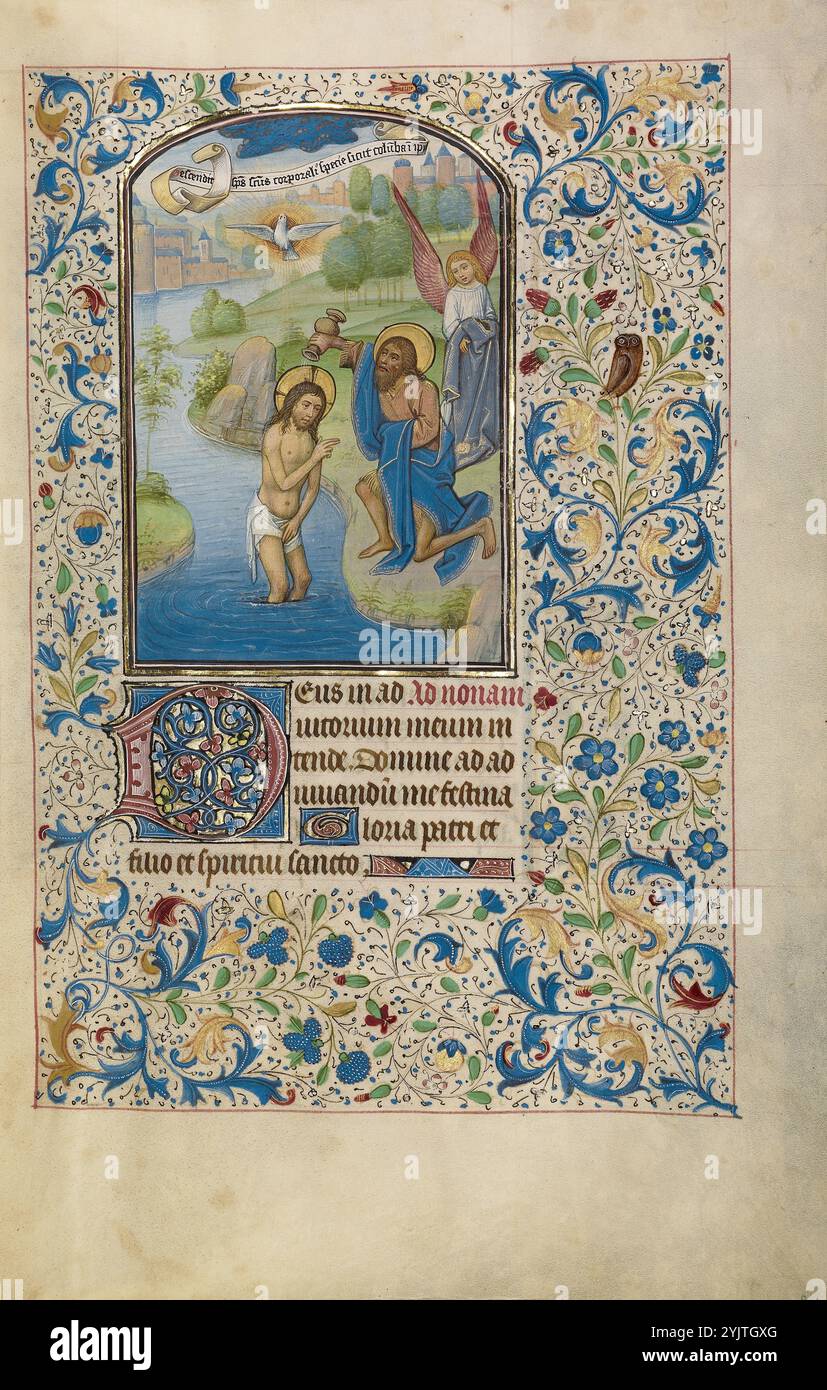 escendit sp̄s sc̄us corporali specie sicut colūba ī ip̄
Deus in ad Ad nonam
iutorium meum in
tende. Domine ad ad
iuuandū me festina
Gloria patri et
filio et spiritui sancto
alamy
Image ID: 2YJTGXG
www.alamy.com